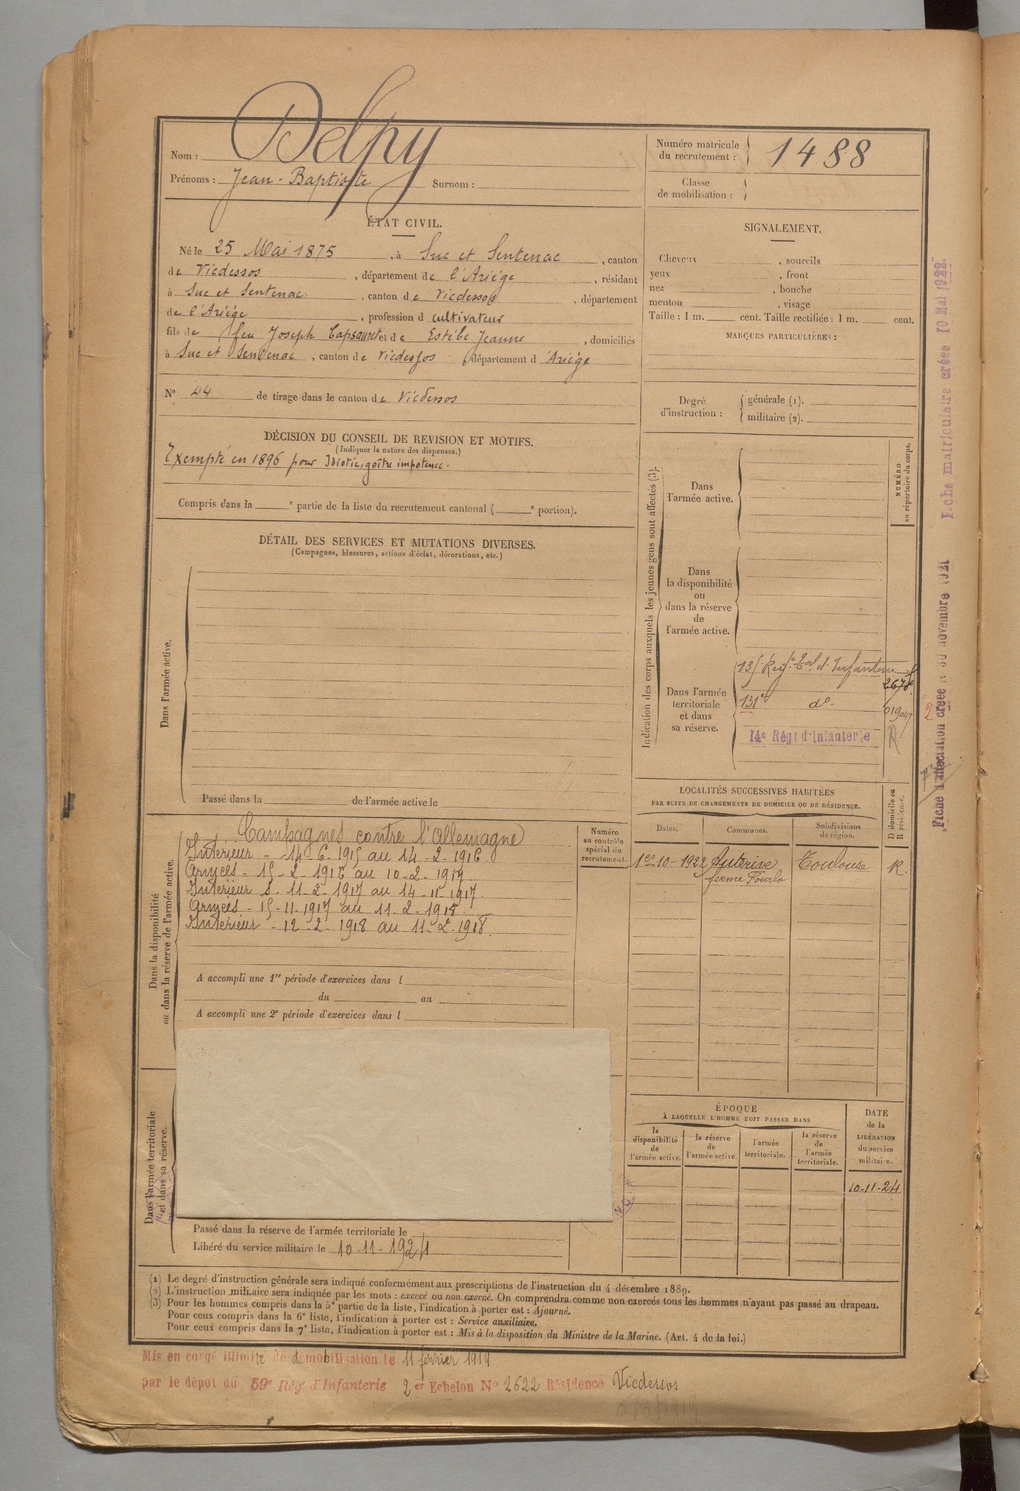 Nom : Delpy
Prénoms : Jean-Baptiste Surnom :
Numéro matricule
du recrutement : 1488
Classe
de mobilisation :
ÉTAT CIVIL.
Né le 25 Mai 1875 , à Suc et Sentenac , canton
de Vicdessos , département de l'Ariége , résidant
à Suc et Sentenac , canton de Vicdessos , département
de l'Ariége , profession d cultivateur
fils de feu Joseph et de Estèbe Jeanne , domiciliés
à Suc et Sentenac , canton de Vicdessos , département d Ariége
N° 44 de tirage dans le canton de Vicdessos
SIGNALEMENT.
Cheveux , sourcils
yeux , front
nez , bouche
menton , visage
Taille : 1 m. cent. Taille rectifiée : 1 m. cent.
MARQUES PARTICULIÈRES :
Degré
d'instruction :
générale (1).
militaire (2).
DÉCISION DU CONSEIL DE REVISION ET MOTIFS.
(Indiquer la nature des dispenses.)
Exempté en 1896 pour Idiotie, goître impotence.
Compris dans la e partie de la liste du recrutement cantonal ( e portion).
DÉTAIL DES SERVICES ET MUTATIONS DIVERSES.
(Campagnes, blessures, actions d'éclat, décorations, etc.)
Dans l'armée active.
Passé dans la de l'armée active le
Indication des corps auxquels les jeunes gens sont affectés (3).
NUMÉRO
au répertoire du corps.
Dans
l'armée active.
Dans
la disponibilité
ou
dans la réserve
de
l'armée active.
Dans l'armée
territoriale
et dans
sa réserve.
135 Regt. Eal d'Infanterie
2678
131e do
14e Régt d'Infanterie
Dans la disponibilité
ou dans la réserve de l'armée active.
Campagnes contre l'Allemagne
Intérieur - 14-6-1915 au 14-2-1916
Armées - 15-2-1916 au 10-2-1917
Intérieur - 11-2-1917 au 14-11-1917.
Armées - 15-11-1917 au 11-2-1918.
Intérieur - 12-2-1918 au 11-2-1918.
Numéro
au contrôle
spécial du
recrutement.
A accompli une 1re période d'exercices dans l
du au
A accompli une 2e période d'exercices dans l
LOCALITÉS SUCCESSIVES HABITÉES
PAR SUITE DE CHANGEMENTS DE DOMICILE OU DE RÉSIDENCE.
Dates. Communes. Subdivisions
de région.
D domicile ou
R résidence.
1er-10-1922 Auterive Toulouse R.
ferme Fourla
Dans l'armée territoriale
et dans sa réserve.
ÉPOQUE
À LAQUELLE L'HOMME DOIT PASSER DANS
la
disponibilité
de
l'armée active.
la réserve
de
l'armée active.
l'armée
territoriale.
la réserve
de
l'armée
territoriale.
DATE
de la
LIBÉRATION
du service
militaire.
10-11-24
Passé dans la réserve de l'armée territoriale le
Libéré du service militaire le 10-11-1924
(1) Le degré d'instruction générale sera indiqué conformément aux prescriptions de l'instruction du 4 décembre 1889.
(2) L'instruction militaire sera indiquée par les mots : exercé ou non exercé. On comprendra comme non exercés tous les hommes n'ayant pas passé au drapeau.
(3) Pour les hommes compris dans la 5e partie de la liste, l'indication à porter est : Ajourné.
Pour ceux compris dans la 6e liste, l'indication à porter est : Service auxiliaire.
Pour ceux compris dans la 7e liste, l'indication à porter est : Mis à la disposition du Ministre de la Marine. (Art. 4 de la loi.)
Mis en congé illimité de démobilisation le 11 février 1919
par le dépôt du 59e Rég. d'Infanterie 2 er Echelon N° 2622 Résidence Vicdessos
Fiche matriculaire créée 10 Mai 1922
Fiche d'affectation créée le 30 novembre 1921